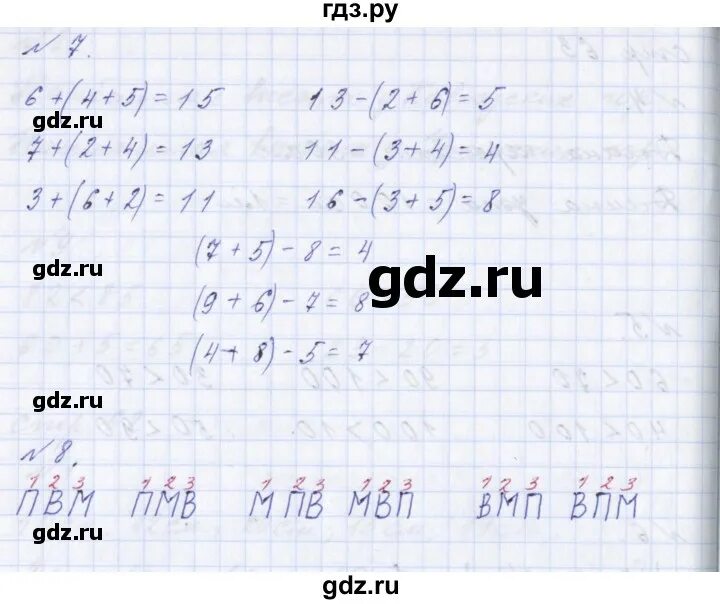 гдз.ру
№ 7.
6+(4+5)=15 13-(2+6)=5
gdz.ru
7+(2+4)=13 11-(3+4)=4
3+(6+2)=11 16-(3+5)=8
(7+5)-8=4
gdz.ru
gdz.ru
(9+6)-7=8
(4+8)-5=7
gdz.ru
№ 8.
1 2 3 1 2 3 1 2 3 1 2 3 1 2 3 1 2 3
ПВМ ПМВ МПВ МВП ВМП ВПМ
gdz.ru gdz.ru
гдз.ру